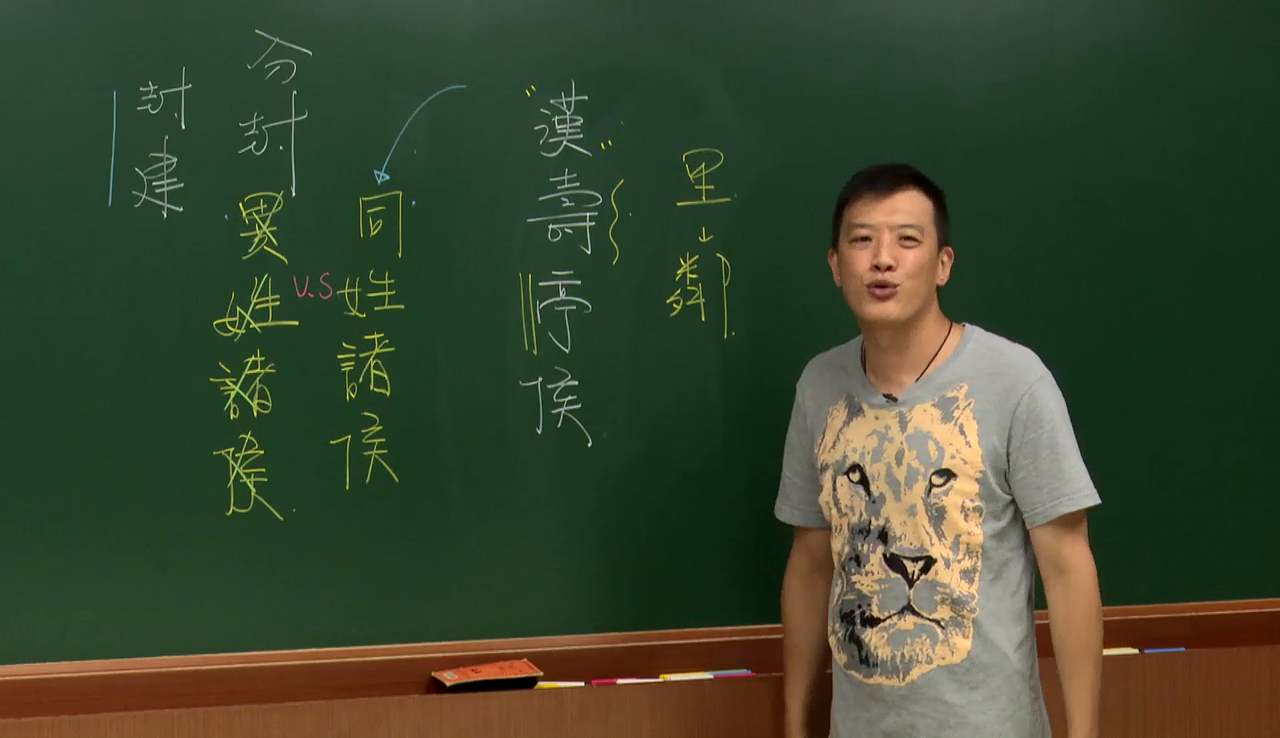 里↓鄰
"漢"壽停侯
同姓諸侯
V.S
分封
異姓諸侯
封建